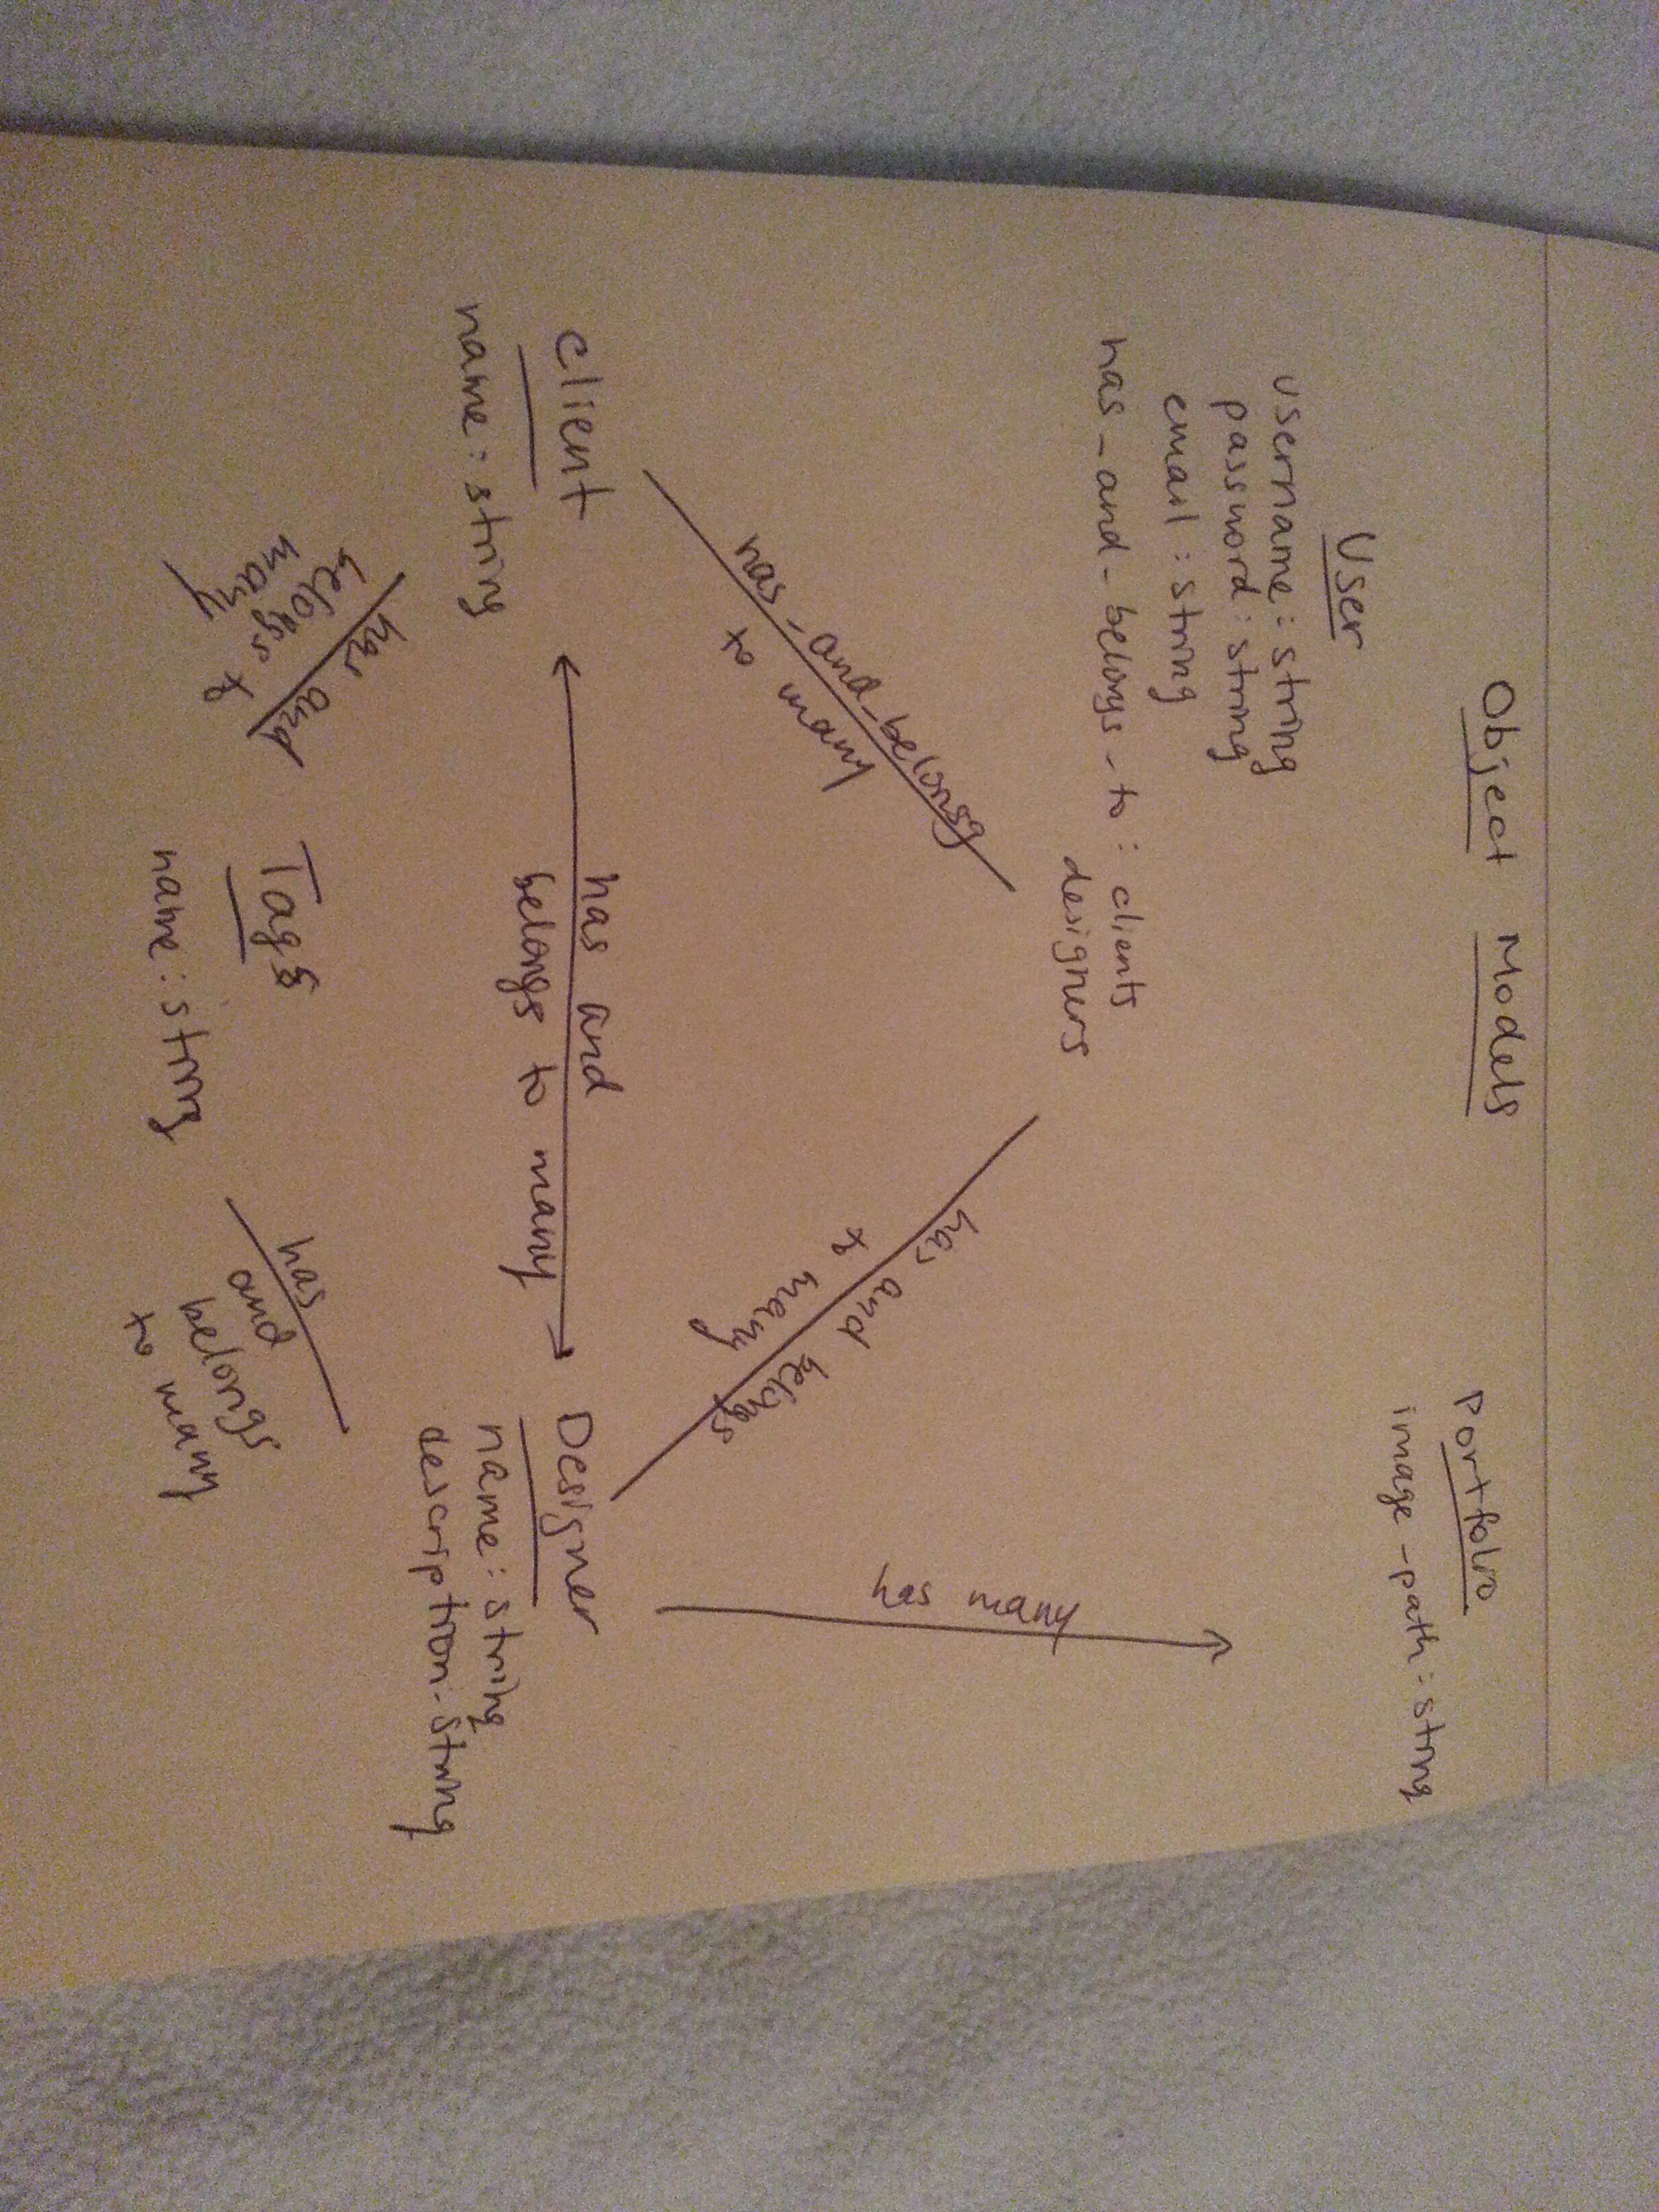 Object Models
User
username : string
password : string
email : string
has_and_belongs_to : clients
designers
Portfolio
image-path : string
has_and_belongs
to many
has and belongs
to many
has many
client
name : string
has and
belongs to many
Designer
name : string
description : string
has and
belongs to
many
Tags
name : string
has
and
belongs
to many